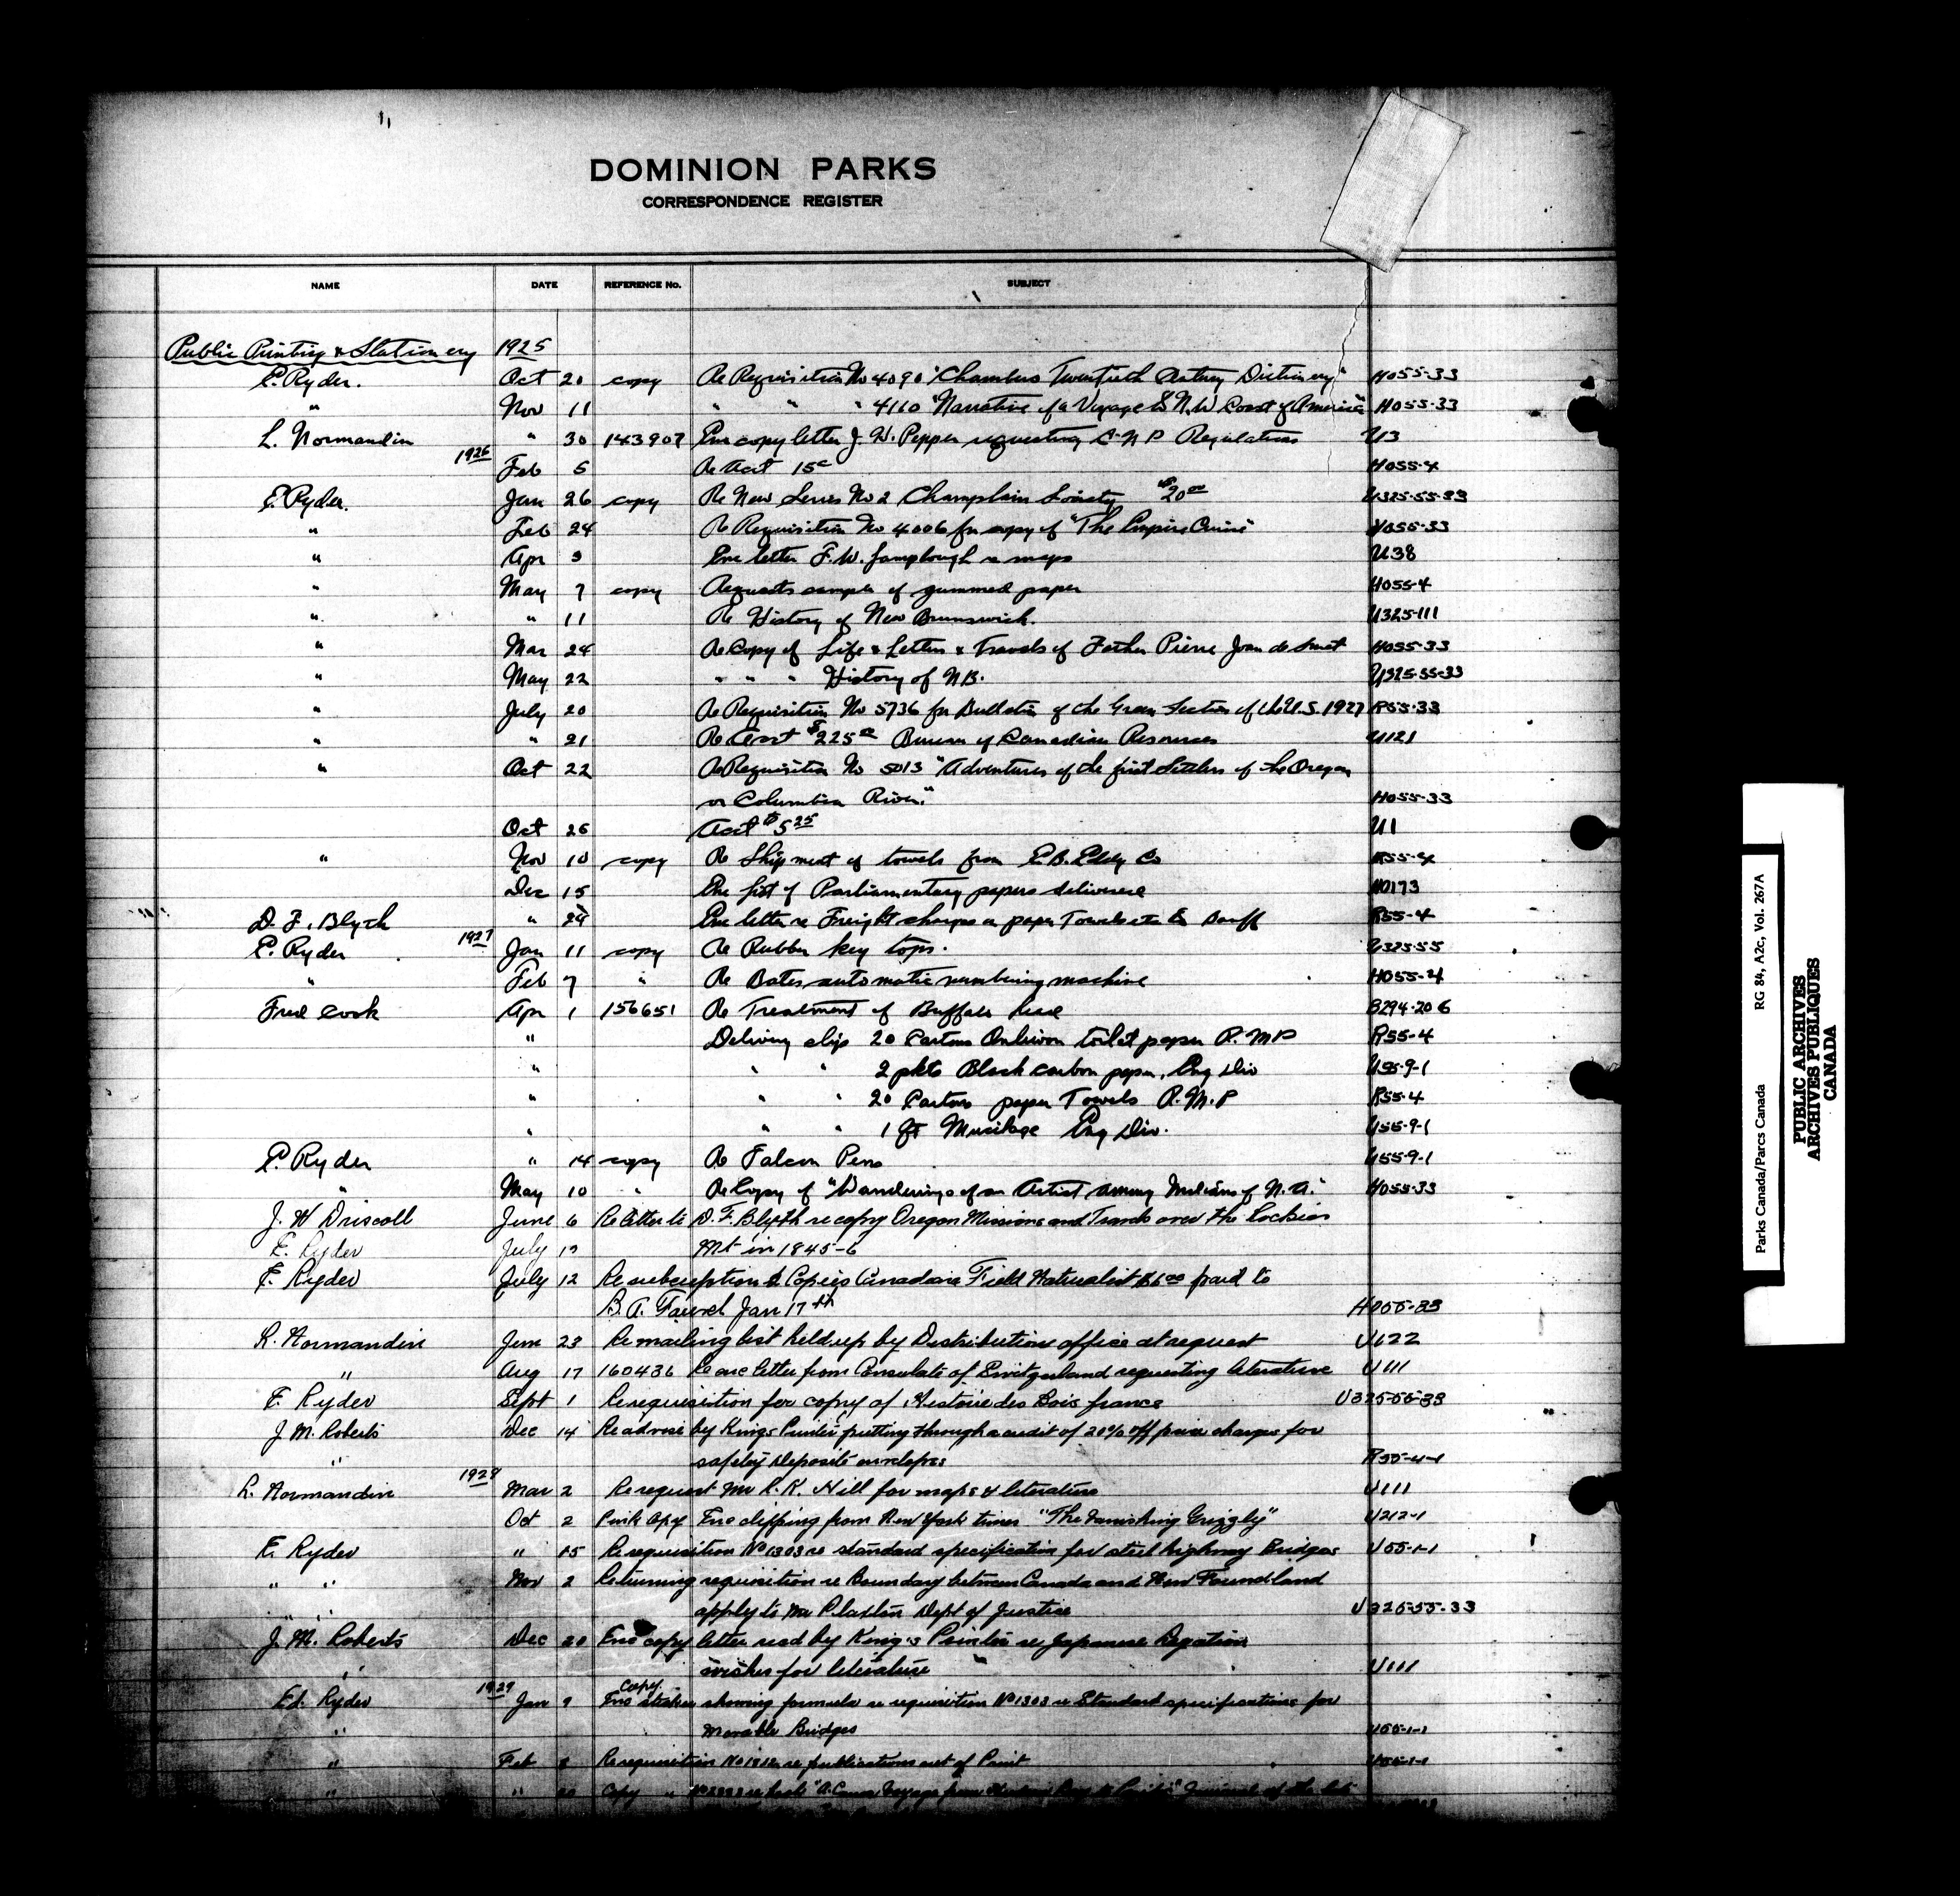 DOMINION PARKS
CORRESPONDENCE REGISTER
NAME DATE REFERENCE No. SUBJECT
Public Printing & Stationery 1925
E. Ryder. Oct 20 copy Re Requisition No 4090 "Chambers Twentieth Century Dictionary" H055-33
" Nov 11 " " " 4160 "Narrative of a Voyage to N.W Coast of America" H055-33
L. Normandin " 30 143907 Enc copy letter J. H. Pepper requesting C.N P Regulations U3
1926 Feb 5 Re Acct 15c H055-4
E. Ryder. Jan 26 copy Re New Series No 2 Champlain Society $20.00 U325-55-33
" Feb 24 Re Requisition No 4006 for copy of "The Empire Cruise" H055-33
" Apr 3 Enc letter F. W. Jamplough re maps U38
" May 7 copy Requests sample of gummed paper H055-4
" " 11 Re History of New Brunswick. U325-111
" Mar 24 Re Copy of Life & Letters & Travels of Father Pierre Jean de Smet H055-33
" May 22 " " " History of N.B. U325-55-33
" July 20 Re Requisition No 5736 for Bulletin of the Green Section of the U.S. 1927 R55-33
" " 21 Re Acct $225.00 Bureau of Canadian Resources U121
" Oct 22 Re Requisition No 5013 "Adventures of the first Settlers of the Oregon
or Columbia River." H055-33
Oct 26 Acct $5.25 U1
" Nov 10 copy Re Shipment of towels from E.B. Eddy Co R55-4
Dec 15 Enc list of Parliamentary papers delivered H0173
D. F. Blyth " 24 Enc letter re Freight charges on paper Towels etc to Banff R55-4
E. Ryder 1927 Jan 11 copy Re Rubber key tops. U325-55
" Feb 7 " Re Bates automatic numbering machine H055-4
Fred Cook Apr 1 156651 Re Treatment of Buffalo head B294-206
" Delivery slip 20 Cartons Onliwon toilet paper R.M.P R55-4
" " " 2 pkts Black carbon paper, Eng Div U55-9-1
" " " 20 Cartons paper Towels R.M.P R55-4
" " " 1 qt Mucilage Eng Div. U55-9-1
E. Ryder " 14 copy Re Falcon Pens U55-9-1
" May 10 " Re Copy of "Wanderings of an Artist among Indians of N.A." H055-33
J. W Driscoll June 6 Re letter to D. F. Blyth re copy Oregon Missions and Travels over the Rockies
E. Ryder July 13 Mt in 1845-6
E. Ryder July 12 Re subscription & Copies Canadian Field Naturalist $6.00 paid to
B. A. Fauvel Jan 17th H055-33
L. Normandin Jun 23 Re mailing list held up by Distribution office at request U622
" Aug 17 160436 Re enc letter from Consulate of Switzerland requesting literature U111
E. Ryder Sept 1 Re requisition for copy of Histoire des Bois francs U325-55-33
J. M. Roberts Dec 14 Re advise by Kings Printer putting through a credit of 20% off price charges for
" safety Deposite envelopes R55-4-1
L. Normandin 1928 Mar 2 Re request Mr R. K. Hill for maps & literature U111
Oct 2 Pink Copy Enc clipping from New York times "The Vanishing Grizzly" U212-1
E. Ryder " 15 Re requisition No 1303 re standard specification for steel highway Bridges U55-1-1
" " Nov 2 Returning requisition re Boundary between Canada and New Foundland
" " apply to Mr Plaxton Dept of Justice U325-55-33
J. M. Roberts Dec 20 Enc copy letter read by King's Printer re Japanese Legation
" wishes for literature U111
Ed. Ryder 1929 Jan 9 Enc copy showing formula re requisition No 1303 re Standard specifications for
" Movable Bridges U55-1-1
" Feb Re requisition re publications out of Print U55-1-1
" " 20 Copy " re book "A Canoe Voyage from Hudson's Bay to Pacific" Journal of the late
Parks Canada/Parcs Canada RG 84, A2c, Vol. 267A
PUBLIC ARCHIVES
ARCHIVES PUBLIQUES
CANADA